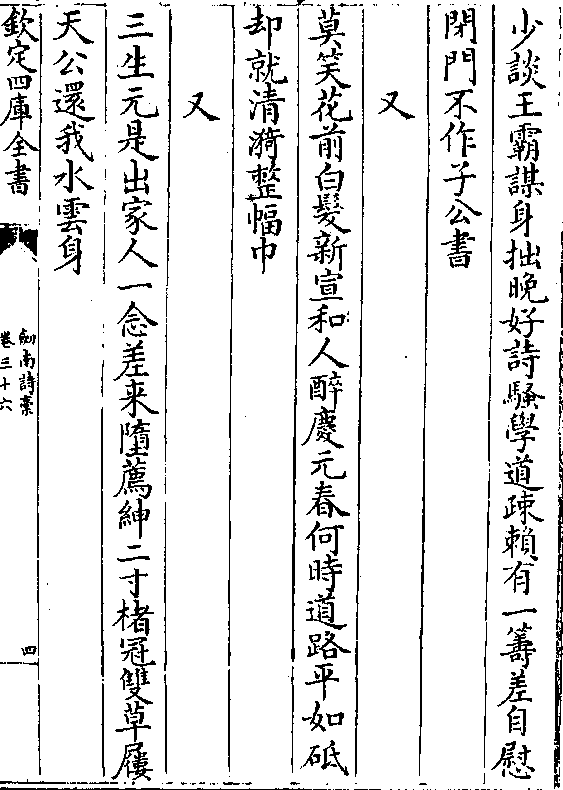 少談王霸謀身拙晚好詩騷學道疎賴有一籌差自慰
閉門不作子公書
又
莫笑花前白髮新宣和人醉慶元春何時道路平如砥
却就清漪整幅巾
又
三生元是出家人一念差來墮薦紳二寸楮冠雙草屨
天公還我水雲身
欽定四庫全書
劍南詩稾
卷三十六
四